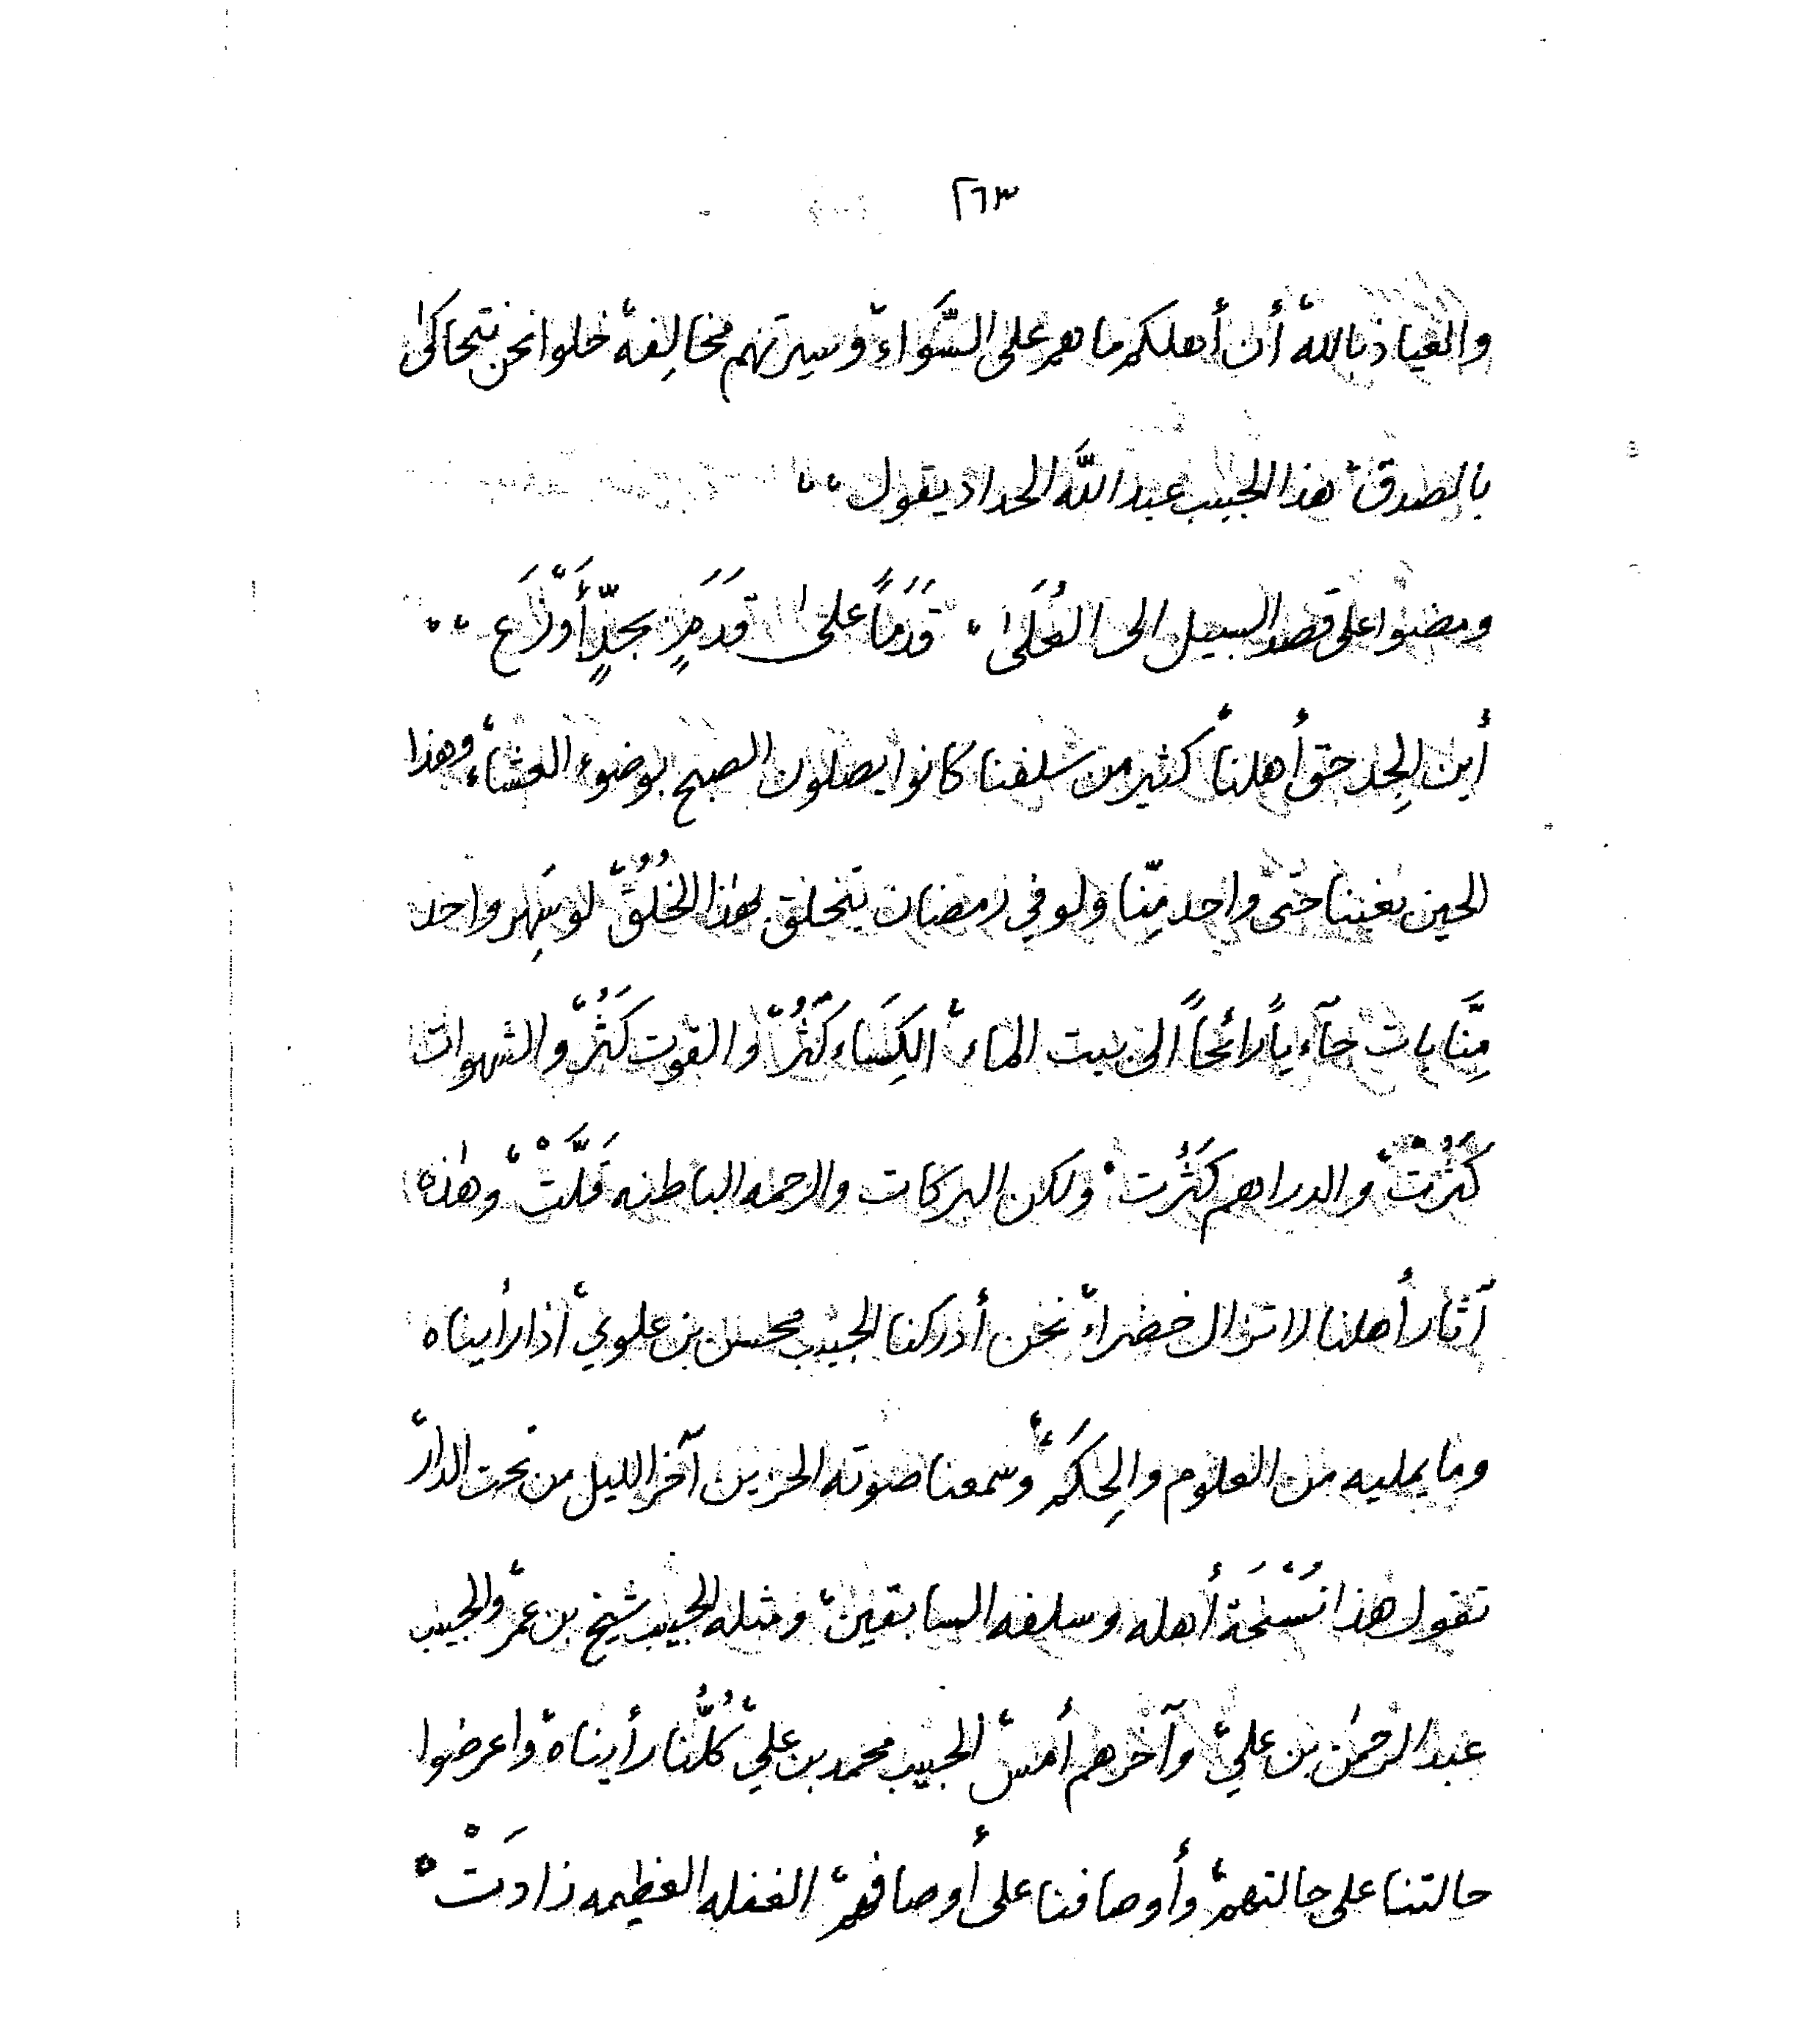 ٢٦٣
والعياذ بالله، أن أهلكم ما هم على السَّوَاء، وسيرتهم مخالِفه، خلوا نحن نتحاكى
بالصدق، هذا الحبيب عبد اللَّه الحداد يقول،،
ومضوا على قصد السبيل الى العُلَى، قَدَماً على قَدَمٍ بجدٍّ أَوْزَع،،
أين الجِد حق أهلنا، كثير من سلفنا كانوا يصلون الصبح بوضوء العشاء، وهذا
الحين بغينا حتى واحد مِنّا ولو في رمضان يتخلق بهذا الخُلُق، لو سَهِر واحد
مِنَّا بات جآءياً رائحاً الى بيت الماء، الكِسَاء كَثُرْ، والقوت كَثُرْ، والشهوات
كَثُرَتْ، والدراهم كَثُرت، ولكن البركات والرحمه الباطنه قَلَّتْ، وهذه
آثار أهلنا لا تزال خضراء، نحن أدركنا الحبيب محسن بن علوي، اذا رأيناه
وما يمليه من العلوم والحِكَم، وسمعنا صوته الحزين آخر الليل من تحت الدار،
تقول هذا نُسْخَة أهله وسلفه السابقين، ومثله الحبيب شيخ بن عمر، والحبيب
عبد الرحمٰن بن علي، وآخرهم أمس، الحبيب محمد بن علي، كُلُّنا رأيناه، واعرضوا
حالتنا على حالتهم، وأوصافنا على أوصافهم، الغفله العظيمه زادَتْ،